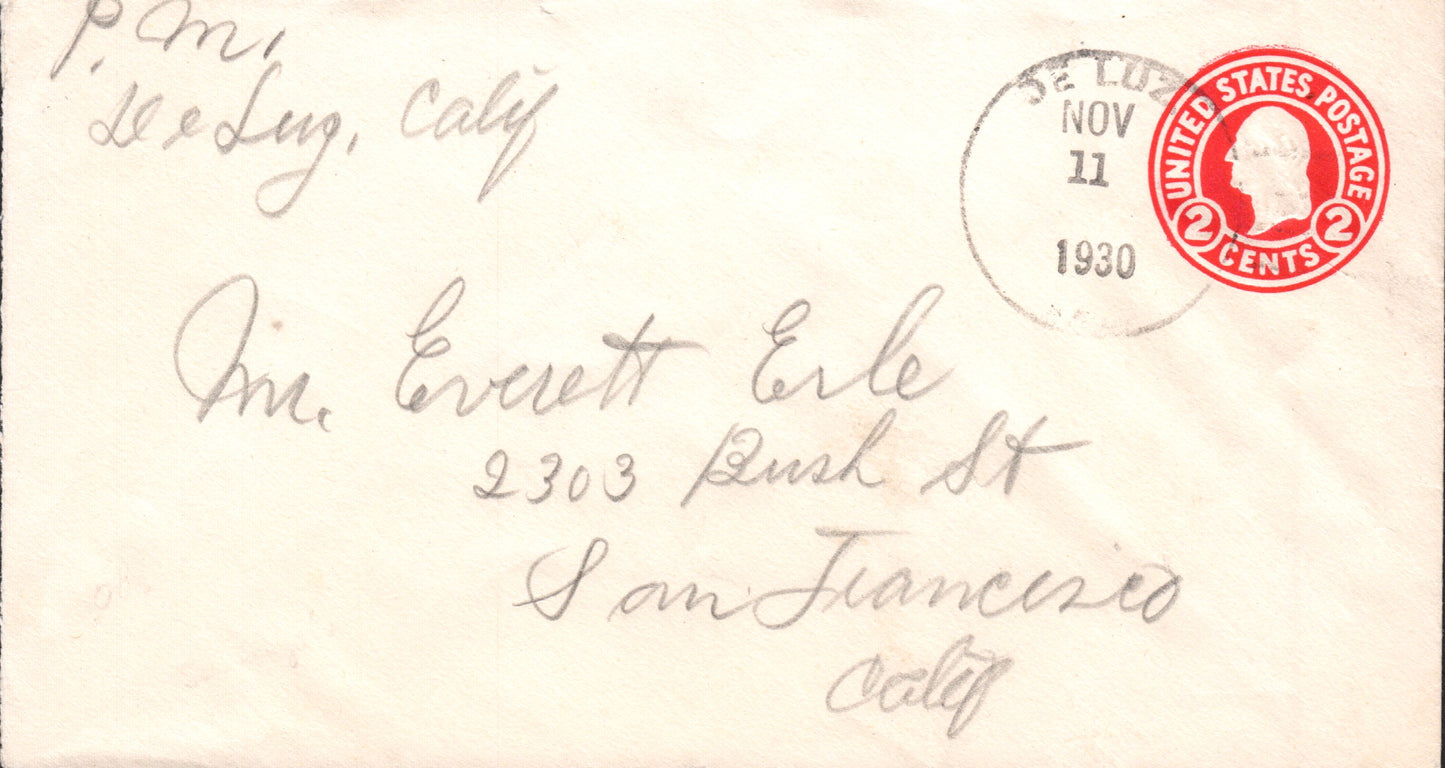 P. M.
De Luz, Calif
DE LUZ
NOV
11
1930
UNITED STATES POSTAGE
2 CENTS 2
Mr. Everett Erle
2303 Bush St
San Francisco
Calif